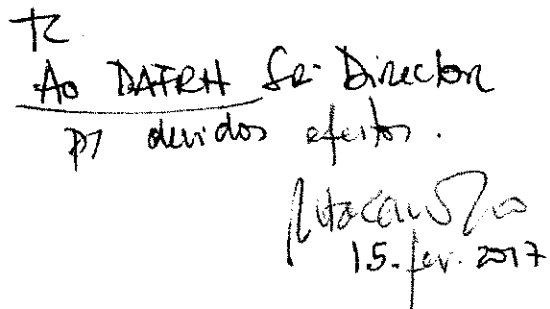 TC
Ao DAFRH Sr. Director
p/ devidos efeitos.
15. fev. 2017